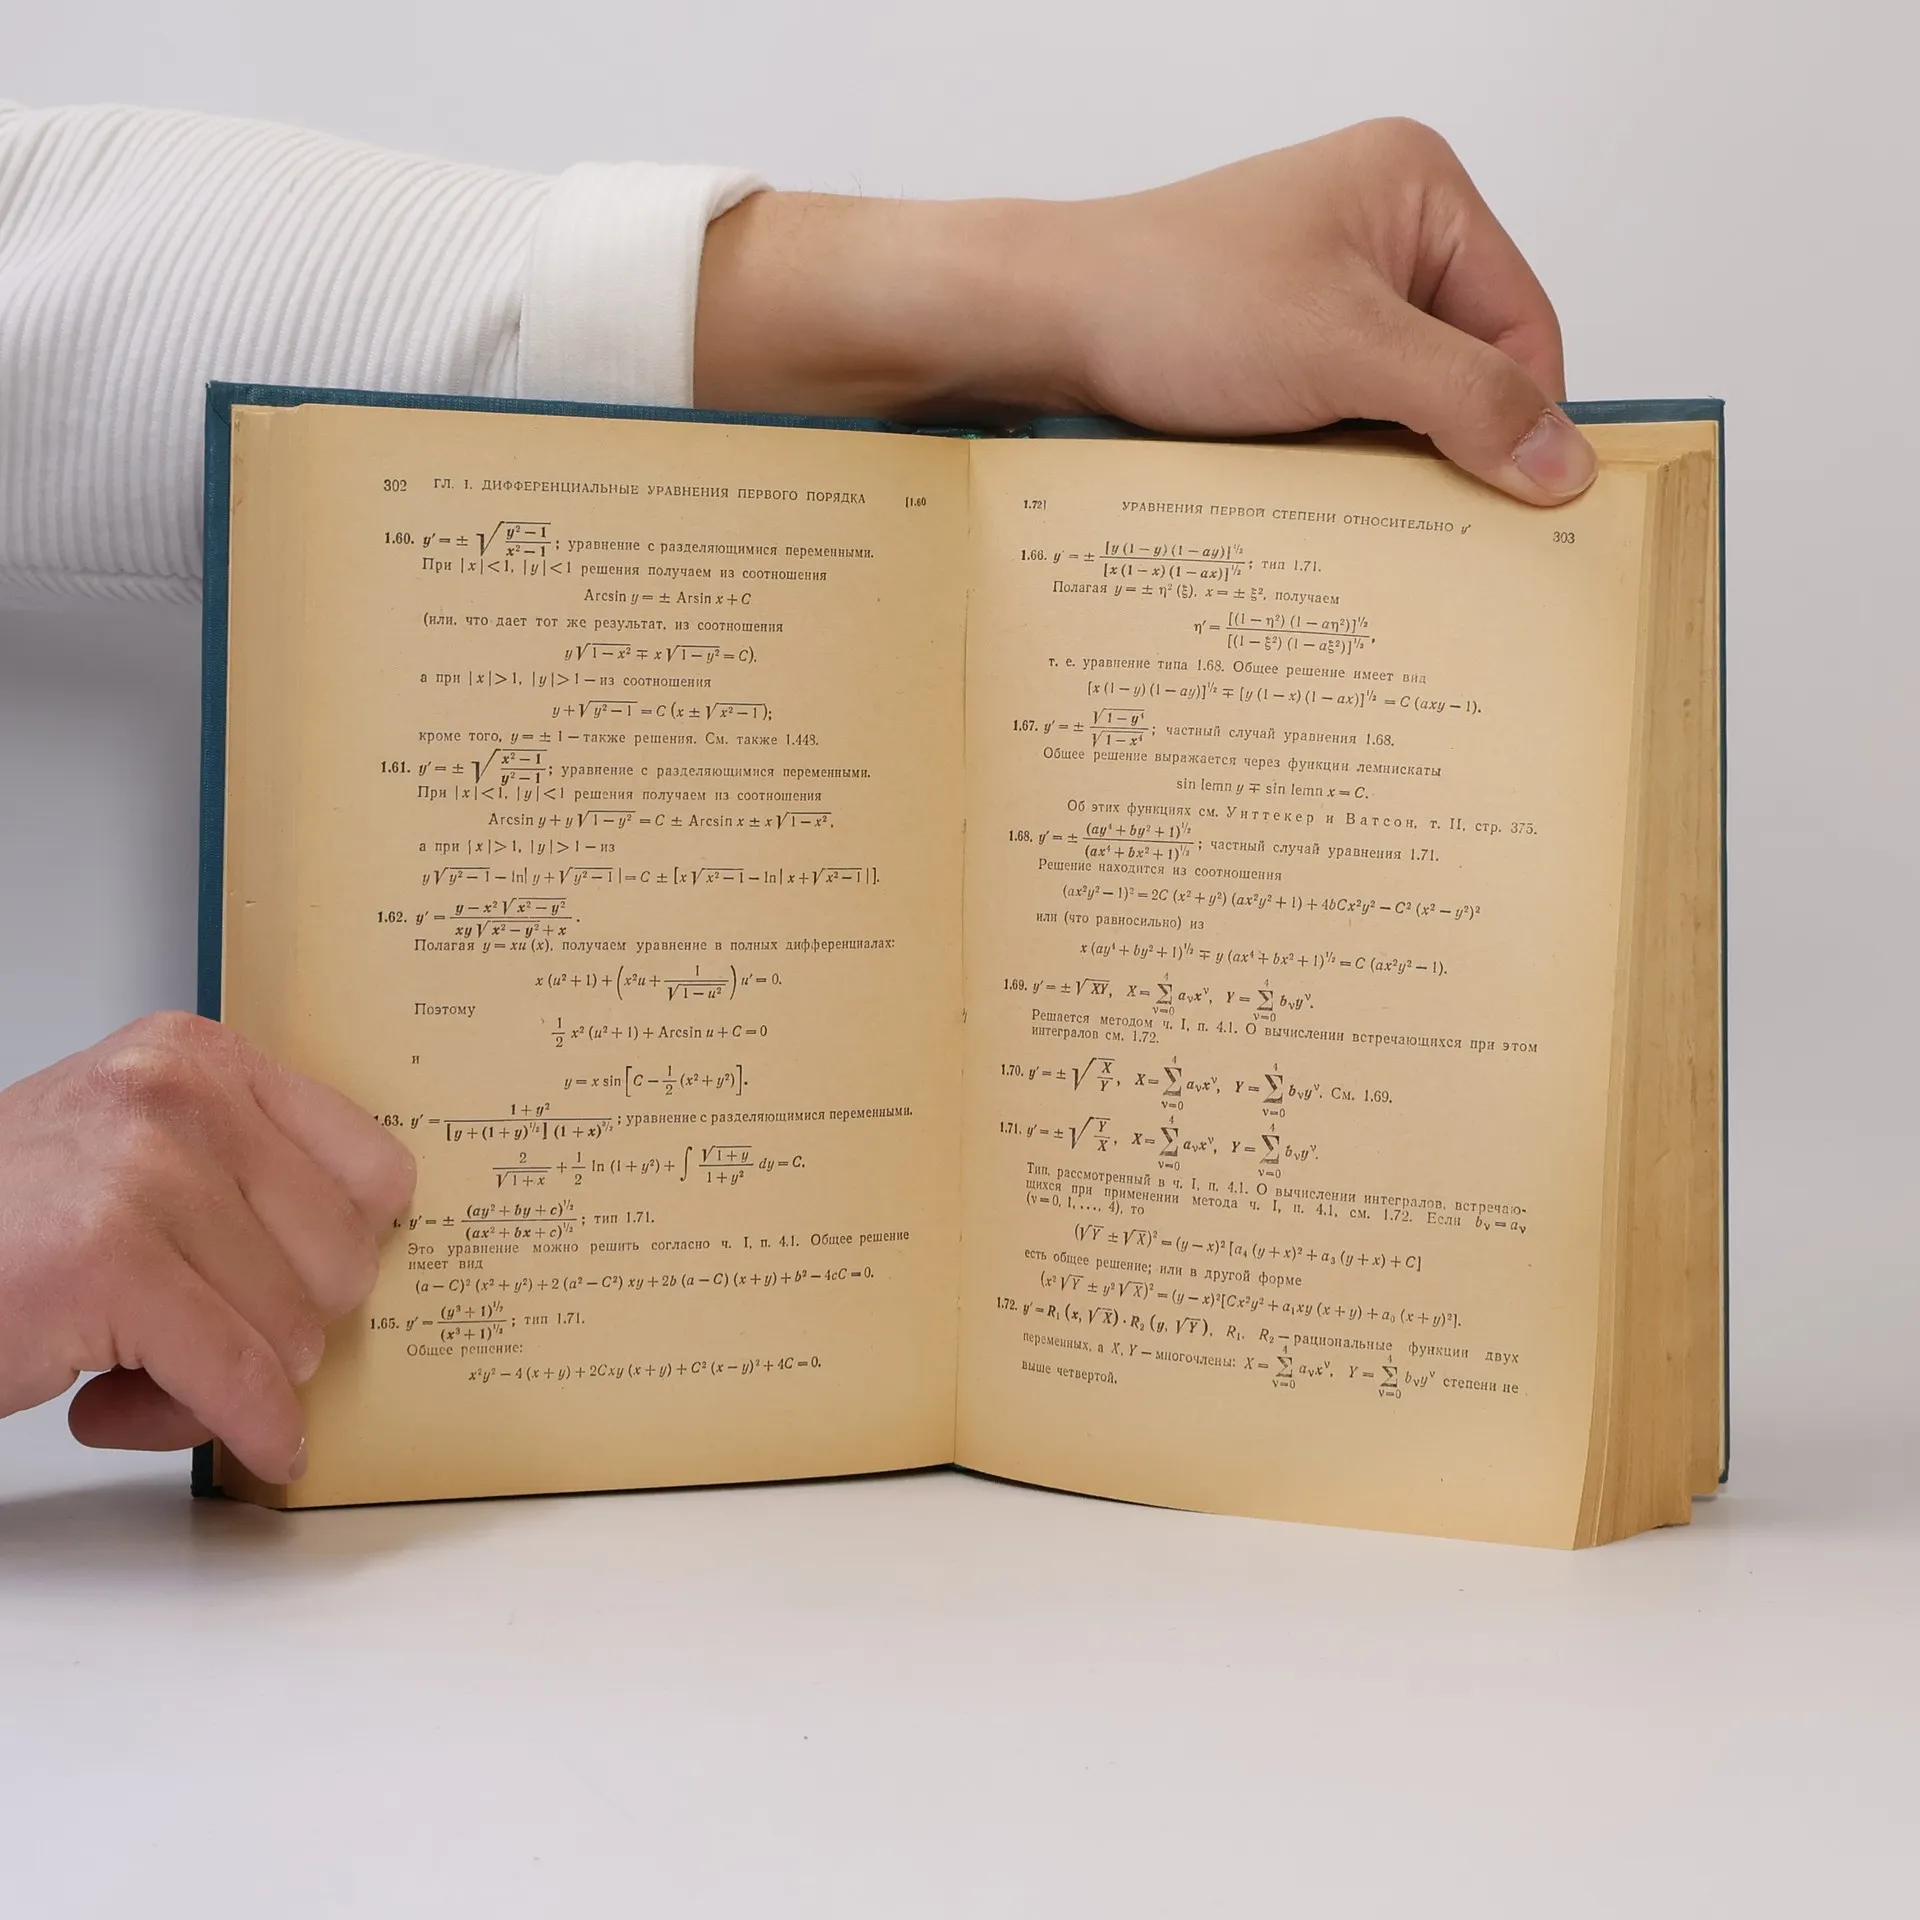 302 ГЛ. I. ДИФФЕРЕНЦИАЛЬНЫЕ УРАВНЕНИЯ ПЕРВОГО ПОРЯДКА [1.60
1.60. y′ = ± √((y² − 1)/(x² − 1)); уравнение с разделяющимися переменными.
При |x| < 1, |y| < 1 решения получаем из соотношения
Arcsin y = ± Arsin x + C
(или, что дает тот же результат, из соотношения
y√(1 − x²) ∓ x√(1 − y²) = C),
а при |x| > 1, |y| > 1 — из соотношения
y + √(y² − 1) = C (x ± √(x² − 1));
кроме того, y = ± 1 — также решения. См. также 1.448.
1.61. y′ = ± √((x² − 1)/(y² − 1)); уравнение с разделяющимися переменными.
При |x| < 1, |y| < 1 решения получаем из соотношения
Arcsin y + y√(1 − y²) = C ± Arcsin x ± x√(1 − x²),
а при |x| > 1, |y| > 1 — из
y√(y² − 1) − ln|y + √(y² − 1)| = C ± [x√(x² − 1) − ln|x + √(x² − 1)|].
1.62. y′ = (y − x²√(x² − y²))/(xy√(x² − y²) + x).
Полагая y = xu (x), получаем уравнение в полных дифференциалах:
x (u² + 1) + (x²u + 1/√(1 − u²)) u′ = 0.
Поэтому
1/2 x² (u² + 1) + Arcsin u + C = 0
и
y = x sin [C − 1/2 (x² + y²)].
.63. y′ = (1 + y²)/([y + (1 + y)^(1/2)] (1 + x)^(3/2)); уравнение с разделяющимися переменными.
2/√(1 + x) + 1/2 ln (1 + y²) + ∫ √(1 + y)/(1 + y²) dy = C.
y′ = ± (ay² + by + c)^(1/2)/(ax² + bx + c)^(1/2); тип 1.71.
Это уравнение можно решить согласно ч. I, п. 4.1. Общее решение
имеет вид
(a − C)² (x² + y²) + 2 (a² − C²) xy + 2b (a − C) (x + y) + b² − 4cC = 0.
1.65. y′ = (y³ + 1)^(1/2)/(x³ + 1)^(1/2); тип 1.71.
Общее решение:
x²y² − 4 (x + y) + 2Cxy (x + y) + C² (x − y)² + 4C = 0.
1.72] УРАВНЕНИЯ ПЕРВОЙ СТЕПЕНИ ОТНОСИТЕЛЬНО y′ 303
1.66. y′ = ± [y (1 − y) (1 − ay)]^(1/2)/[x (1 − x) (1 − ax)]^(1/2); тип 1.71.
Полагая y = ± η² (ξ), x = ± ξ², получаем
η′ = [(1 − η²) (1 − aη²)]^(1/2)/[(1 − ξ²) (1 − aξ²)]^(1/2),
т. е. уравнение типа 1.68. Общее решение имеет вид
[x (1 − y) (1 − ay)]^(1/2) ∓ [y (1 − x) (1 − ax)]^(1/2) = C (axy − 1).
1.67. y′ = ± √(1 − y⁴)/√(1 − x⁴); частный случай уравнения 1.68.
Общее решение выражается через функции лемнискаты
sin lemn y ∓ sin lemn x = C.
Об этих функциях см. Уиттекер и Ватсон, т. II, стр. 375.
1.68. y′ = ± (ay⁴ + by² + 1)^(1/2)/(ax⁴ + bx² + 1)^(1/2); частный случай уравнения 1.71.
Решение находится из соотношения
(ax²y² − 1)² = 2C (x² + y²) (ax²y² + 1) + 4bCx²y² − C² (x² − y²)²
или (что равносильно) из
x (ay⁴ + by² + 1)^(1/2) ∓ y (ax⁴ + bx² + 1)^(1/2) = C (ax²y² − 1).
1.69. y′ = ± √(XY), X = ∑_(ν=0)^4 a_ν x^ν, Y = ∑_(ν=0)^4 b_ν y^ν.
Решается методом ч. I, п. 4.1. О вычислении встречающихся при этом
интегралов см. 1.72.
1.70. y′ = ± √(X/Y), X = ∑_(ν=0)^4 a_ν x^ν, Y = ∑_(ν=0)^4 b_ν y^ν. См. 1.69.
1.71. y′ = ± √(Y/X), X = ∑_(ν=0)^4 a_ν x^ν, Y = ∑_(ν=0)^4 b_ν y^ν.
Тип, рассмотренный в ч. I, п. 4.1. О вычислении интегралов, встречаю-
щихся при применении метода ч. I, п. 4.1, см. 1.72. Если b_ν = a_ν
(ν = 0, 1, ..., 4), то
(√Y ± √X)² = (y − x)² [a₄ (y + x)² + a₃ (y + x) + C]
есть общее решение; или в другой форме
(x²√Y ± y²√X)² = (y − x)² [Cx²y² + a₁xy (x + y) + a₀ (x + y)²].
1.72. y′ = R₁ (x, √X) · R₂ (y, √Y), R₁, R₂ — рациональные функции двух
переменных, а X, Y — многочлены: X = ∑_(ν=0)^4 a_ν x^ν, Y = ∑_(ν=0)^4 b_ν y^ν степени не
выше четвертой.